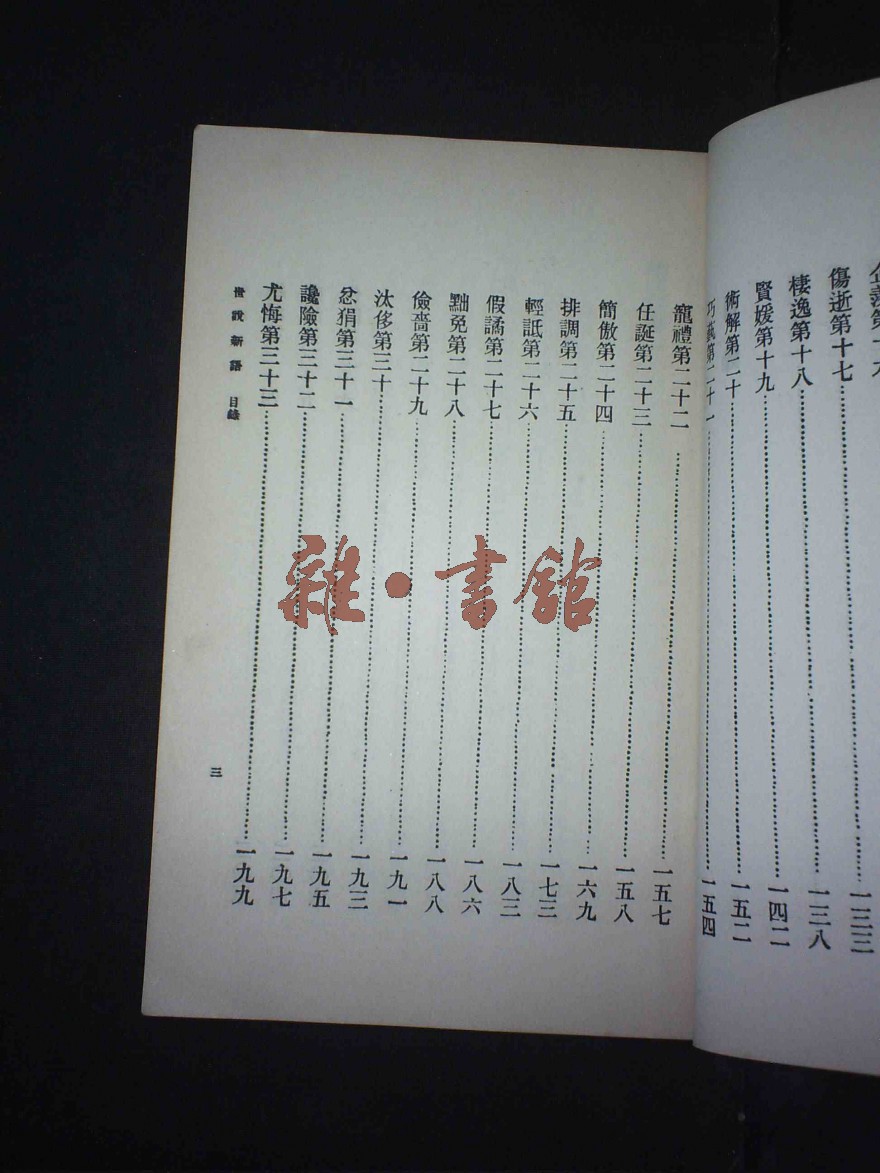 傷逝第十七……一三三
棲逸第十八……一三八
賢媛第十九……一四二
術解第二十……一五二
巧藝第二十一……一五四
寵禮第二十二……一五七
任誕第二十三……一五八
簡傲第二十四……一六九
排調第二十五……一七三
輕詆第二十六……一八三
假譎第二十七……一八六
黜免第二十八……一八八
儉嗇第二十九……一九一
汰侈第三十……一九三
忿狷第三十一……一九五
讒險第三十二……一九七
尤悔第三十三……一九九
世說新語 目錄
三
雜·書館